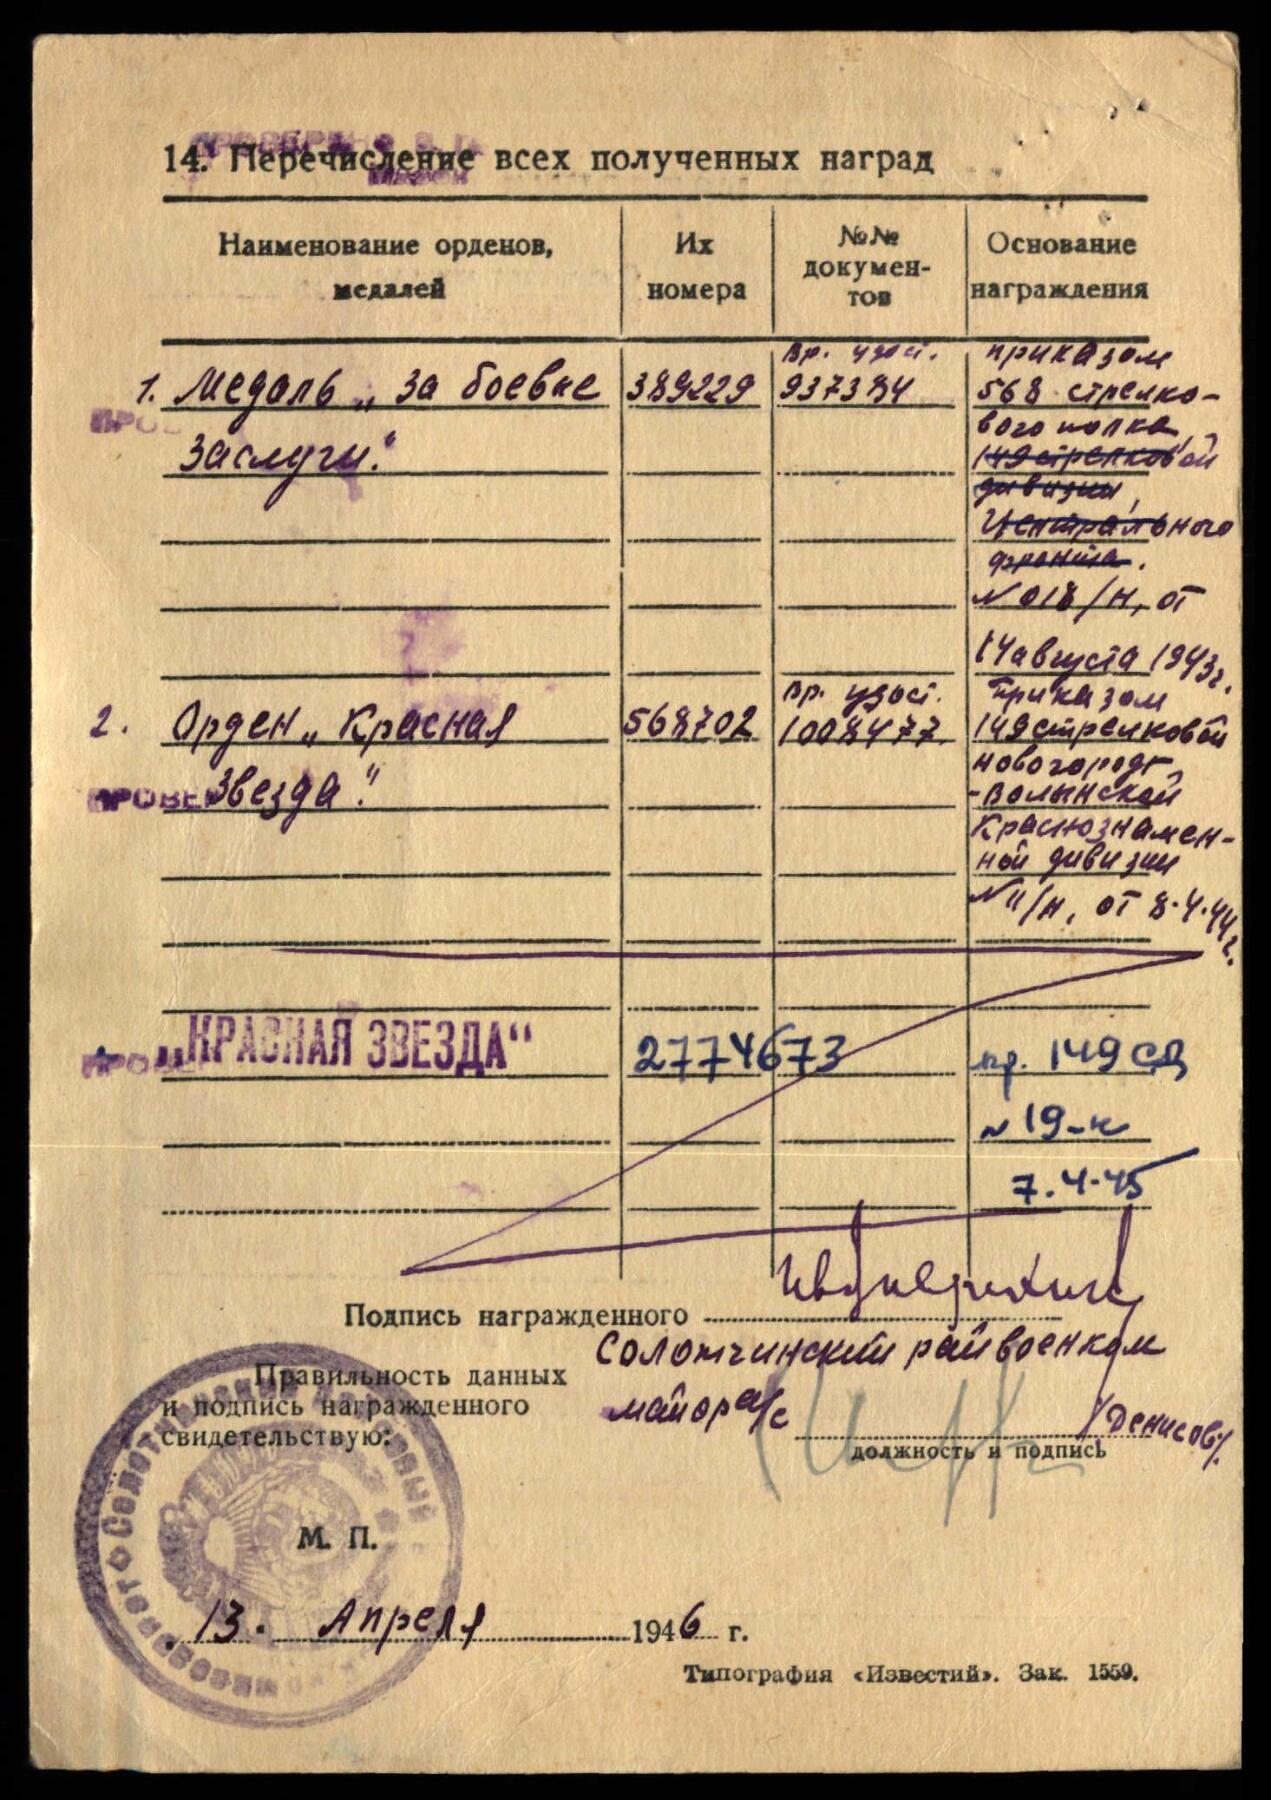 14. Перечисление всех полученных наград
Наименование орденов, медалей
Их номера
№№ документов
Основание награждения
вр. удост. приказом
1. Медаль „За боевые 389229 937384 568 стрелко-
вого полка,
заслуги." 149 стрелковой
дивизии,
Центрального
фронта.
N 018/н, от
14 августа 1943 г.
вр. удост. Приказом
2. Орден „Красная 568702 1008477 149 стрелковой
новогород-
ПРОВЕ Звезда." -волынской
Краснознамен-
ной дивизии
N 11/н, от 8.4.44 г.
„КРАСНАЯ ЗВЕЗДА“ 2774673 пр. 149 СД
N 19-н
7.4.45
Подпись награжденного
Солотчинский райвоенком
Правильность данных
и подпись награженного майор а/с
свидетельствую: /Денисов/
должность и подпись
М. П.
13. Апреля 1946 г.
Типография «Известий». Зак. 1559.